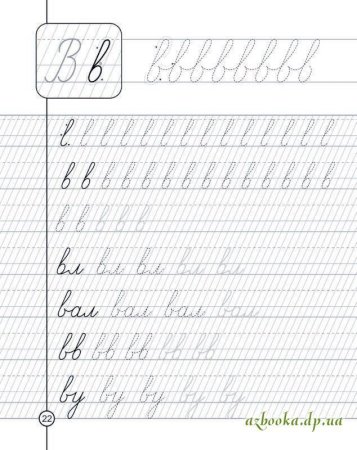 В в в в в в в в в в
в в в в в в в в в в в в в в
в в в в в
вл вл вл вл вл
вал вал вал вал
вв вв вв вв вв
ву ву ву ву ву
22
azbooka.dp.ua